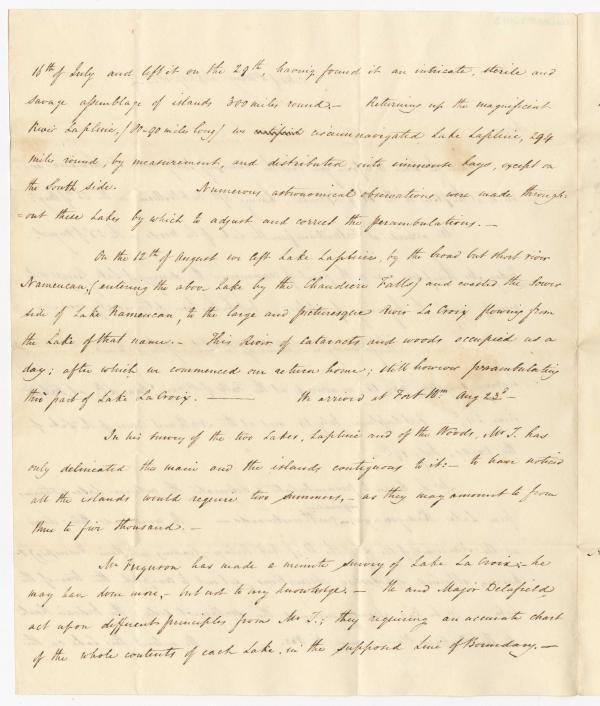 16th of July and left it on the 29th, having found it an intricate, sterile and
savage assemblage of islands 300 miles round.— Returning up the magnificent
River Lapluie, (80-90 miles long) we circumnavigated Lake Lapluie, 294
miles round, by measurement, and distributed into immense bays, except on
the South side. Numerous astronomical observations were made through-
=out these Lakes by which to adjust and correct the perambulations.—
On the 12th of August we left Lake Lapluie, by the broad but short river
Nameucan, (entering the above Lake by the Chaudiere Falls) and coasted the lower
side of Lake Nameucan, to the large and picturesque River La Croix flowing from
the Lake of that name.— This River of cataracts and woods occupied us a
day; after which we commenced our return home; still however perambulating
this part of Lake La Croix.— We arrived at Fort Wm Aug 23d—
In his survey of the two Lakes, Lapluie and of the Woods, Mr T. has
only delineated the main and the islands contiguous to it:— to have noticed
all the islands would require two summers,— as they may amount to from
three to five thousand.—
Mr Ferguson has made a minute survey of Lake La Croix;— he
may have done more,— but not to my knowledge.— He and Major Delafield
act upon different principles from Mr T.; they requiring an accurate chart
of the whole contents of each Lake, in the supposed Line of Boundary.—